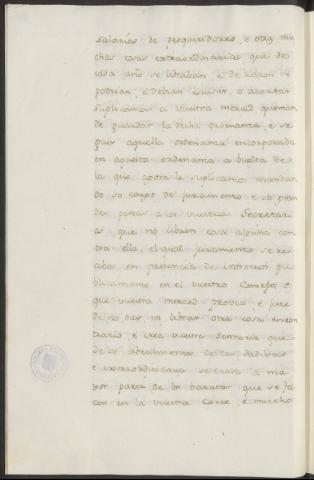 salarios de pesquiridores, e otras mu
chas cosas extraordinarias que de
cada año se libraban, e de razon se
podrian, e debian escusar, o acortar
suplicamos a Vuestra merced que man
de guardar la dicha ordenanza, e se
guir aquella ordenanza encorporada
en aquesta ordenanza a buelta de
la que agora le suplicamos mandan
do so cargo de juramento e so gran
des penas a los vuestros Secretari
os, que no libren cosa alguna con
tra ella, el qual juramento se rec
ciba en presencia de vuestros pu
blicamente en el vuestro Consejo, e
que vuestra merced provea e jure
de no dar ni librar otra cosa en con
trario, e crea vuestra Señoria que
de los libramientos de las dadibas
e extraordinarias se causa la ma
yor parte de los baratos que se fa
cen en la vuestra Corte, e mucho